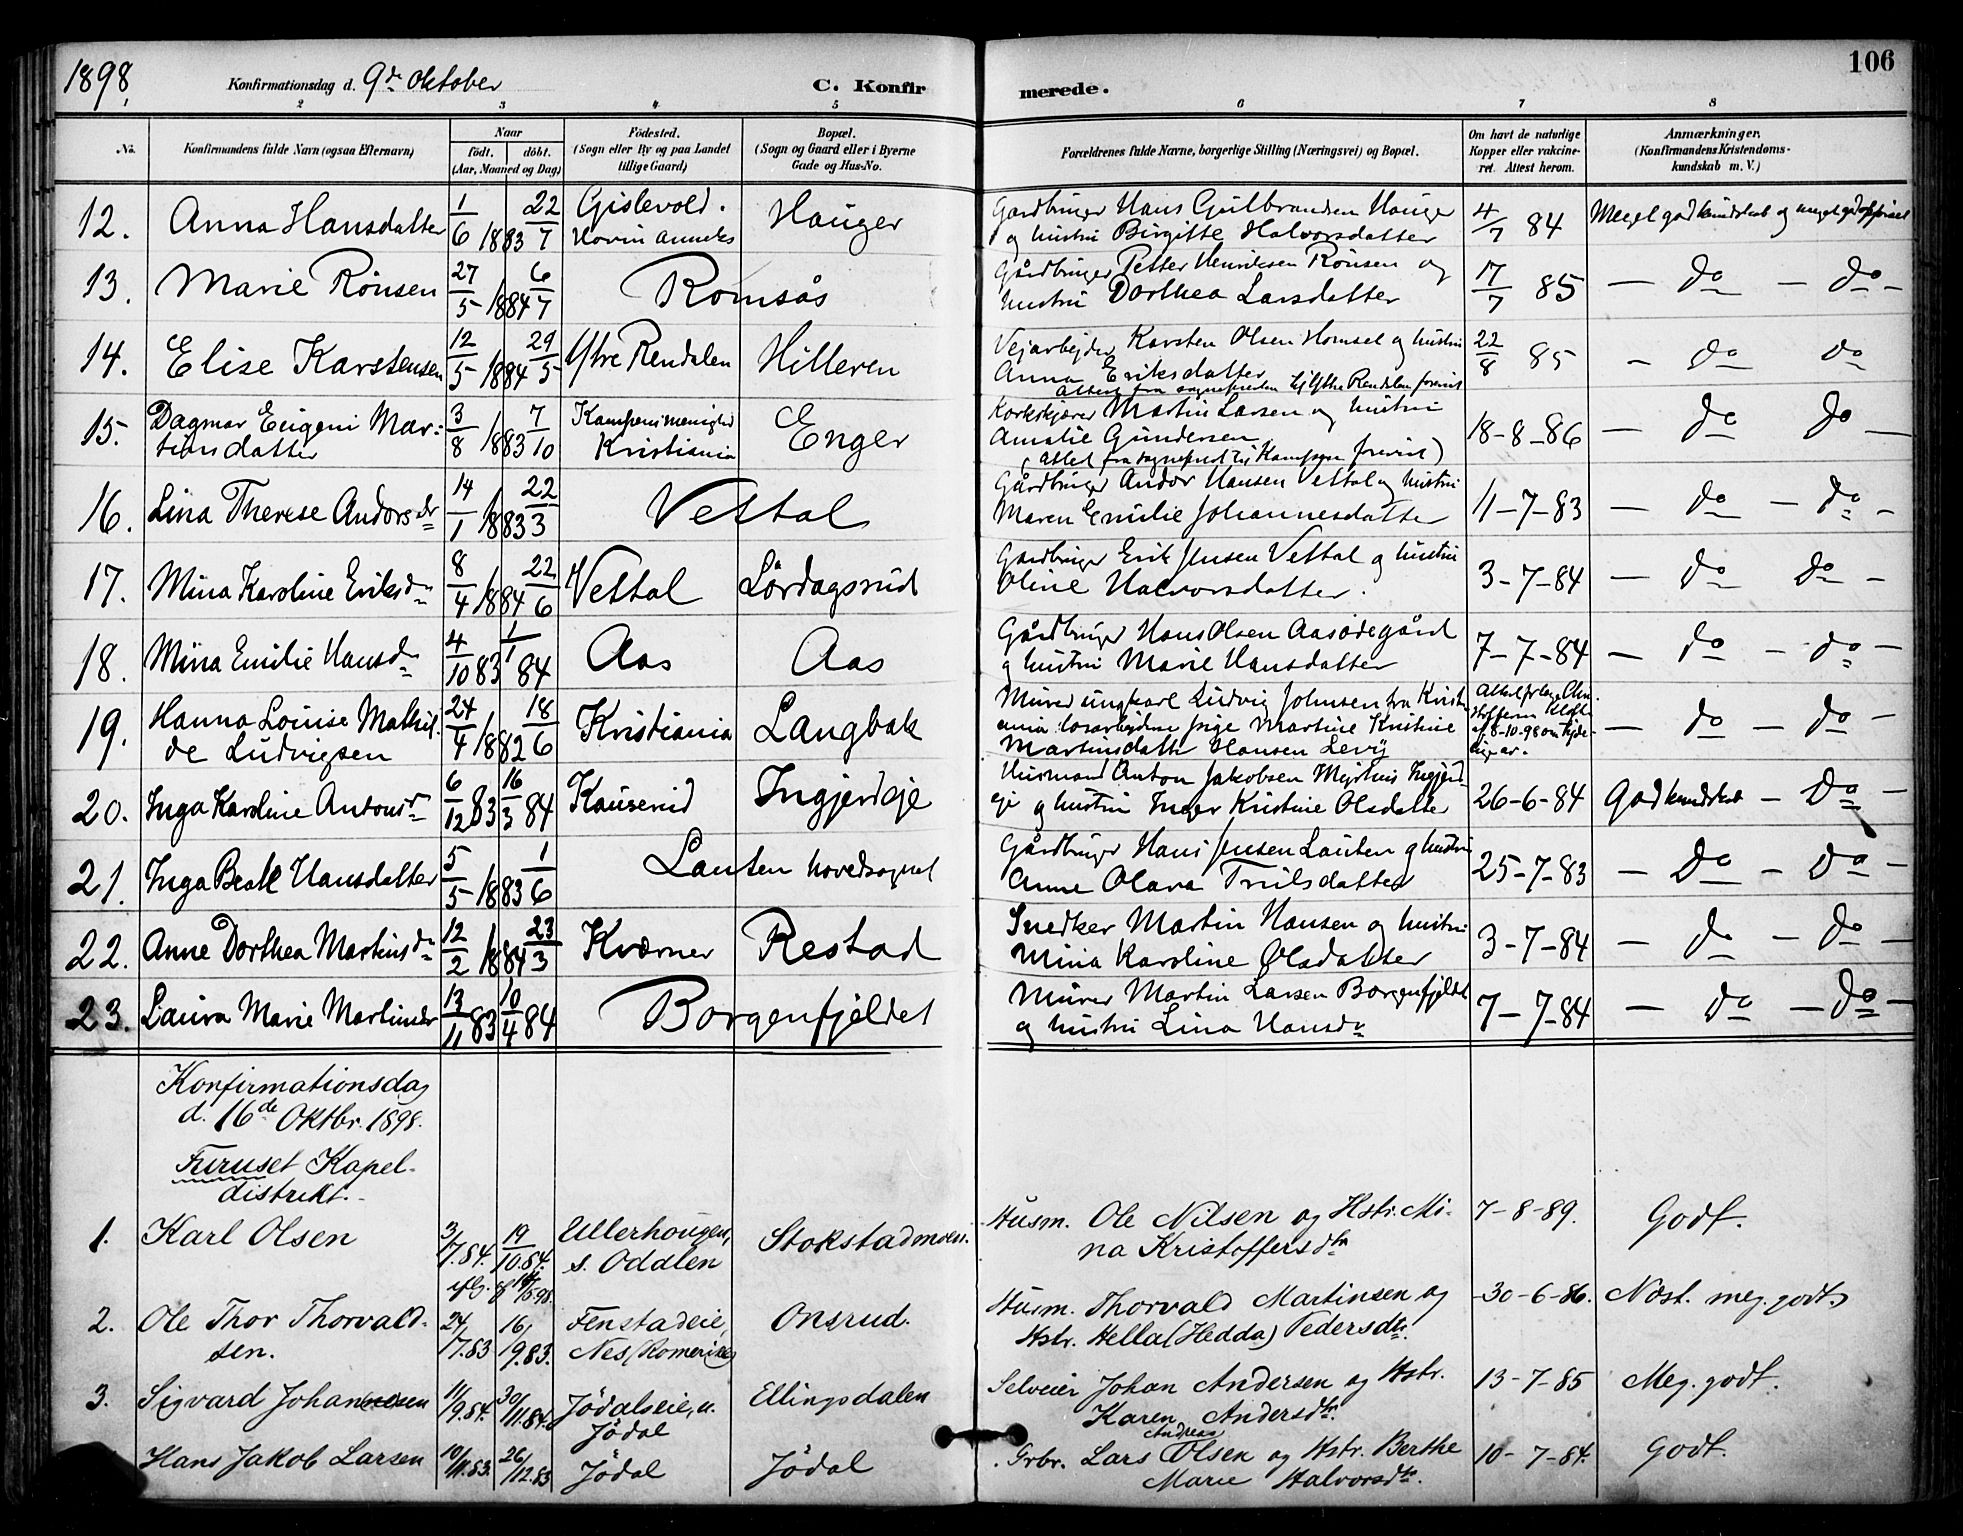 1898,
Konfirmationsdag d. 9de Oktober
C. Konfirmerede.
106
2 3 4 5 6 7 8
No.
Konfirmandens fulde Navn (ogsaa Efternavn)
Naar
födt. döbt.
(Aar, Maaned og Dag)
Födested.
(Sogn eller By og paa Landet
tillige Gaard)
Bopæl.
(Sogn og Gaard eller i Byerne
Gade og Hus-No.
Forældrenes fulde Navne, borgerlige Stilling (Næringsvei) og Bopæl.
Om havt de naturlige
Kopper eller vakcine-
ret. Attest herom.
Anmærkninger.
(Konfirmandens Kristendoms-
kundskab m. V.)
12. Anna Hansdatter 1/6 1883 22/7 Gislevold. Hauger Gardbruger Hans Gulbrandsen Hauger 4/7 84 Meget god kundskab og meget god opførsel
Hovin Anneks og hustru Birgitte Halvorsdatter
13. Marie Rönsen 27/5 1884 6/7 Romsås Gårdbruger Petter Henriksen Rönsen og 17/7 85 — do — do —
hustru Dorthea Larsdatter
14. Elise Karstensen 12/5 1884 29/5 Ytre Rendalen Hilleren Vejarbejder Karsten Olsen Homsel og hustru 22/8 85 — do do
Anna Eriksdatter
Attest fra sognepresten til Ytre Rendalen forevist
15. Dagmar Eugeni Mar- 3/8 1883 7/10 Kampens menighed Enger Korkskjærer Martin Larsen og hustru 18-8-86 — do do —
tinsdatter Kristiania Amalie Gundersen
(Attest fra sogneprest til Kampen forevist)
16. Lina Therese Andorsdr 14/1 1883 22/3 Vestal Gårdbruger Andor Hansen Vestal og hustru 11-7-83 — do — do —
Maren Emilie Johannesdatter
17. Mina Karoline Eriksdr 8/4 1884 22/6 Vestal Lördagsrud Gardbruger Erik Jensen Vestal og hustru 3-7-84 — do do —
Oline Halvorsdatter.
18. Mina Emilie Hansdr 4/10 83 1/1 84 Aas Aas Gårdbruger Hans Olsen Aasödegård 7-7-84 — do — do —
og hustru Marie Hansdatter
19. Hanna Louise Mathil- 24/4 1882 18/6 Kristiania Langbak Murer ungkarl Ludvig Johnsen fra Kristi- — do — do —
de Ludvigsen ania losarbejdene pige Martine Kristine
Martinsdatter Hansen Levy
af 8-10-98 om
20. Inga Karoline Antonsdr 6/12 83 16/3 84 Kauserud Ingjerdeje Husmand Anton Jakobsen Ingjerd- 26-6-84 God kundskab — do —
eje og hustru Inger Kristine Olsdatter
21. Inga Beate Hansdatter 5/5 1883 1/6 Lauten hovedsognet Gårdbruger Hans Jensen Lauten og hustru 25-7-83 — do — do —
Anne Olava Trulsdatter
22. Anne Dorthea Martinsdr 12/2 1884 23/3 Kværner Restad Snedker Martin Hansen og hustru 3-7-84 — do — do —
Mina Karoline Olsdatter
23. Laura Marie Martinsdr 13/11 83 10/4 84 Borgenfjeldet Murer Martin Larsen Borgenfjeldet 7-7-84 — do — do —
og hustru Lina Hansdr
Konfirmationsdag
d. 16de Oktbr. 1898.
Furuset Kapel-
distrikt.
1. Karl Olsen 3/7.84. 19/10.84. Ullerhougen, Stokstadmoen. Husm. Ole Nilsen og Hstr. Mi- 7-8-89. Godt.
s. Oddalen na Kristoffersdtr
2. Ole Thor Thorvald- 24/7.83 16/9.83. Fenstadeie, Onsrud. Husm. Thorvald Martinsen og 30-6-86. Næst. meg. godt.
sen. Nes (Romerike) Hstr. Hella (Hedda) Pedersdtr.
3. Sigvard Johannesen 11/9.84. 30/11.84. Jödalseie, u. Ellingsdalen Selveier Johan Andersen og Hstr. 13-7-85 Meg. godt.
Jödal Karen Andersdtr.
Hans Jakob Larsen 10/11.83. 26/12.83 Jödal Jödal Grbr. Lars Andreas Olsen og Hstr. Berthe 10-7-84. Godt.
Marie Halvorsdtr.